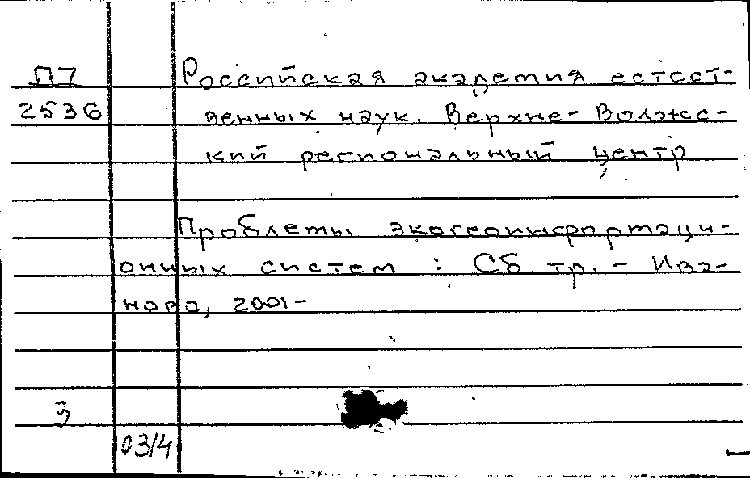 П7 Российская академия естест-
2536 венных наук. Верхне-Волжс-
кий региональный центр
Проблемы экогеоинформаци-
онных систем : Сб тр. - Ива-
ново, 2001-
03/4